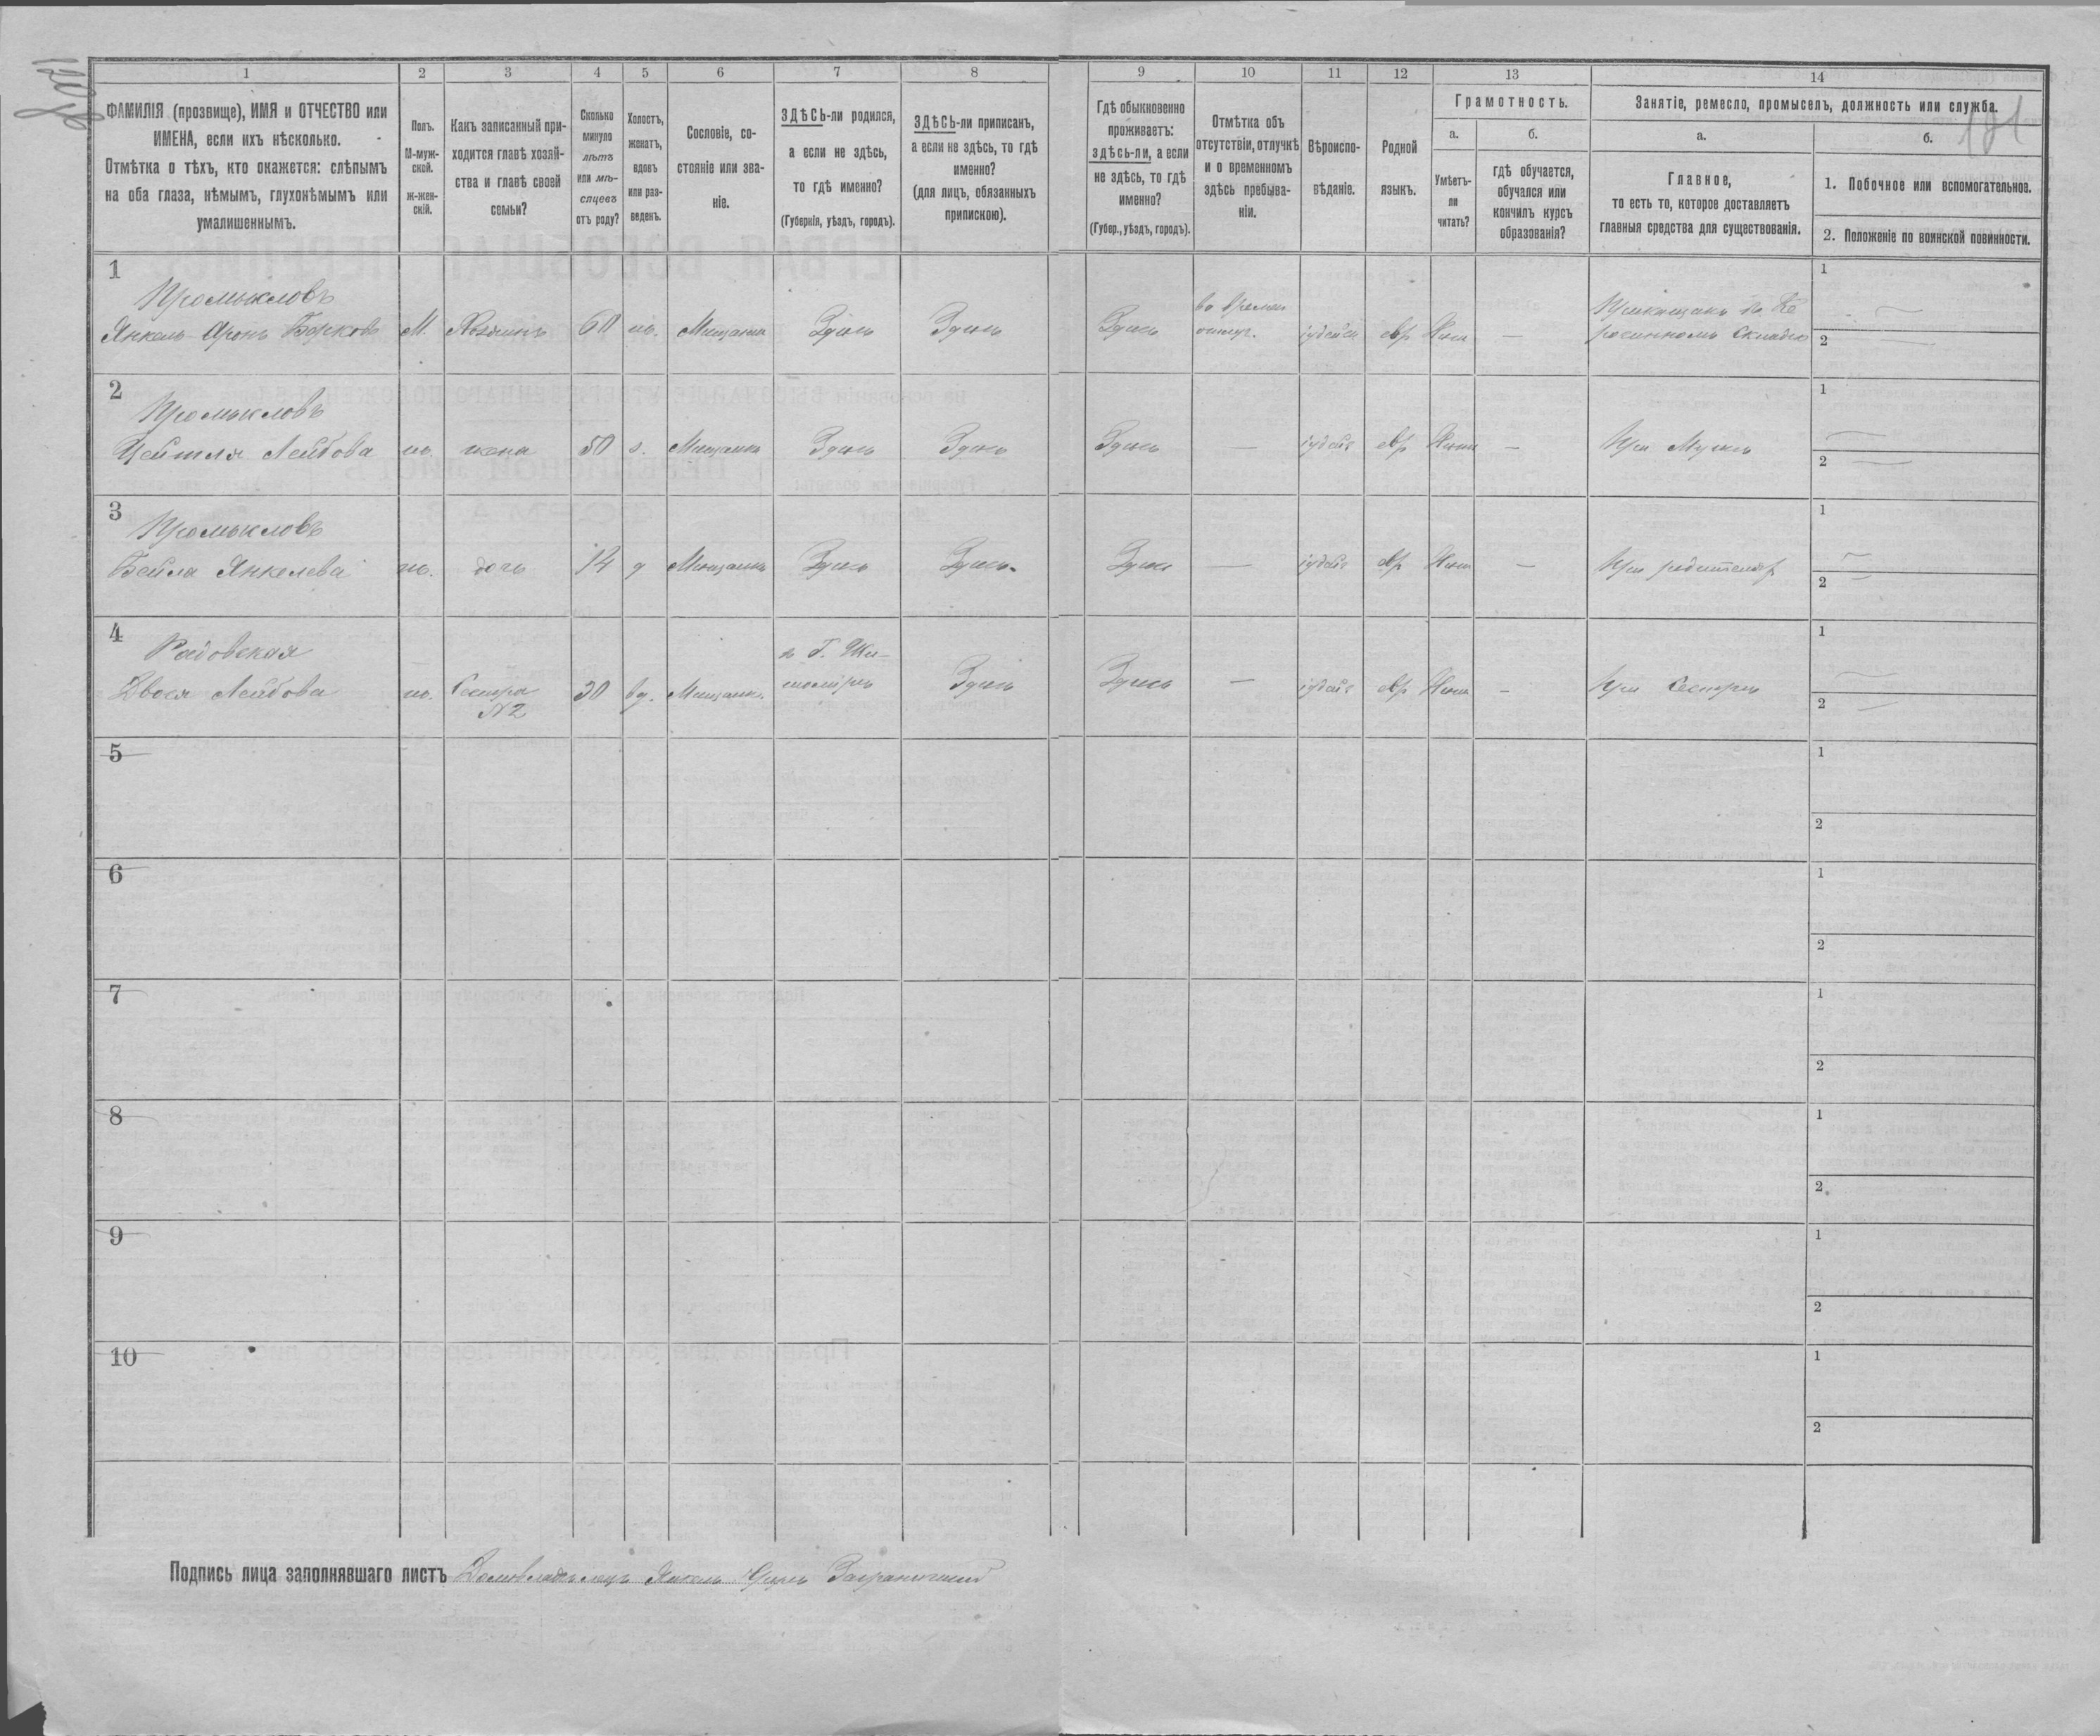 120 об
181
1 2 3 4 5 6 7 8 9 10 11 12 13 14
ФАМИЛІЯ (прозвище), ИМЯ и ОТЧЕСТВО или
ИМЕНА, если ихъ нѣсколько.
Отмѣтка о тѣхъ, кто окажется: слѣпымъ
на оба глаза, нѣмымъ, глухонѣмымъ или
умалишеннымъ.
Полъ.
М-муж-
ской.
ж-жен-
скій.
Какъ записанный при-
ходится главѣ хозяй-
ства и главѣ своей
семьи?
Сколько
минуло
лѣтъ
или мѣ-
сяцевъ
отъ роду?
Холостъ,
женатъ,
вдовъ
или раз-
веденъ.
Сословіе, со-
стояніе или зва-
ніе.
ЗДѢСЬ-ли родился,
а если не здѣсь,
то гдѣ именно?
(Губернія, уѣздъ, городъ).
ЗДѢСЬ-ли приписанъ,
а если не здѣсь, то гдѣ
именно?
(для лицъ, обязанныхъ
припискою).
Гдѣ обыкновенно
проживаетъ:
здѣсь-ли, а если
не здѣсь, то гдѣ
именно?
(Губер., уѣздъ, городъ).
Отмѣтка объ
отсутствіи, отлучкѣ
и о временномъ
здѣсь пребыва-
ніи.
Вѣроиспо-
вѣданіе.
Родной
языкъ.
Грамотность.
а.
Умѣетъ-
ли
читать?
б.
гдѣ обучается,
обучался или
кончилъ курсъ
образованія?
Занятіе, ремесло, промыселъ, должность или служба.
а.
Главное,
то есть то, которое доставляетъ
главныя средства для существованія.
б.
1. Побочное или вспомогательное.
2. Положеніе по воинской повинности.
1
Промысловъ
Янкель-Аронъ Берковъ М. Хозяинъ 60 ж. Мещанинъ Здѣсь Здѣсь Здѣсь
во времен
отлуч.
іудейск евр Нѣтъ —
Прикащикъ въ Ке
росинномъ Складѣ
1 —
2 —
2
Промысловъ
Цейтля Лейбова ж. жена 50 з. Мещанка Здѣсь Здѣсь Здѣсь — іудейс евр Нѣтъ — При Мужѣ
1 —
2 —
3
Промысловъ
Бейла Янкелева ж. дочь 14 д Мещанка Здѣсь Здѣсь Здѣсь — іудейс евр Нѣтъ — При родителях
1 —
2 —
4
Радовская
Двося Лейбова ж. Сестра
N2
30 вд. Мещанк.
в Г. Жи-
томірѣ
Здѣсь Здѣсь — іудейс евр Нѣтъ — При Сестрѣ
1 —
2 —
5
1
2
6
1
2
7
1
2
8
1
2
9
1
2
10
1
2
Подпись лица заполнявшаго листъ Домовладѣлецъ Янкель